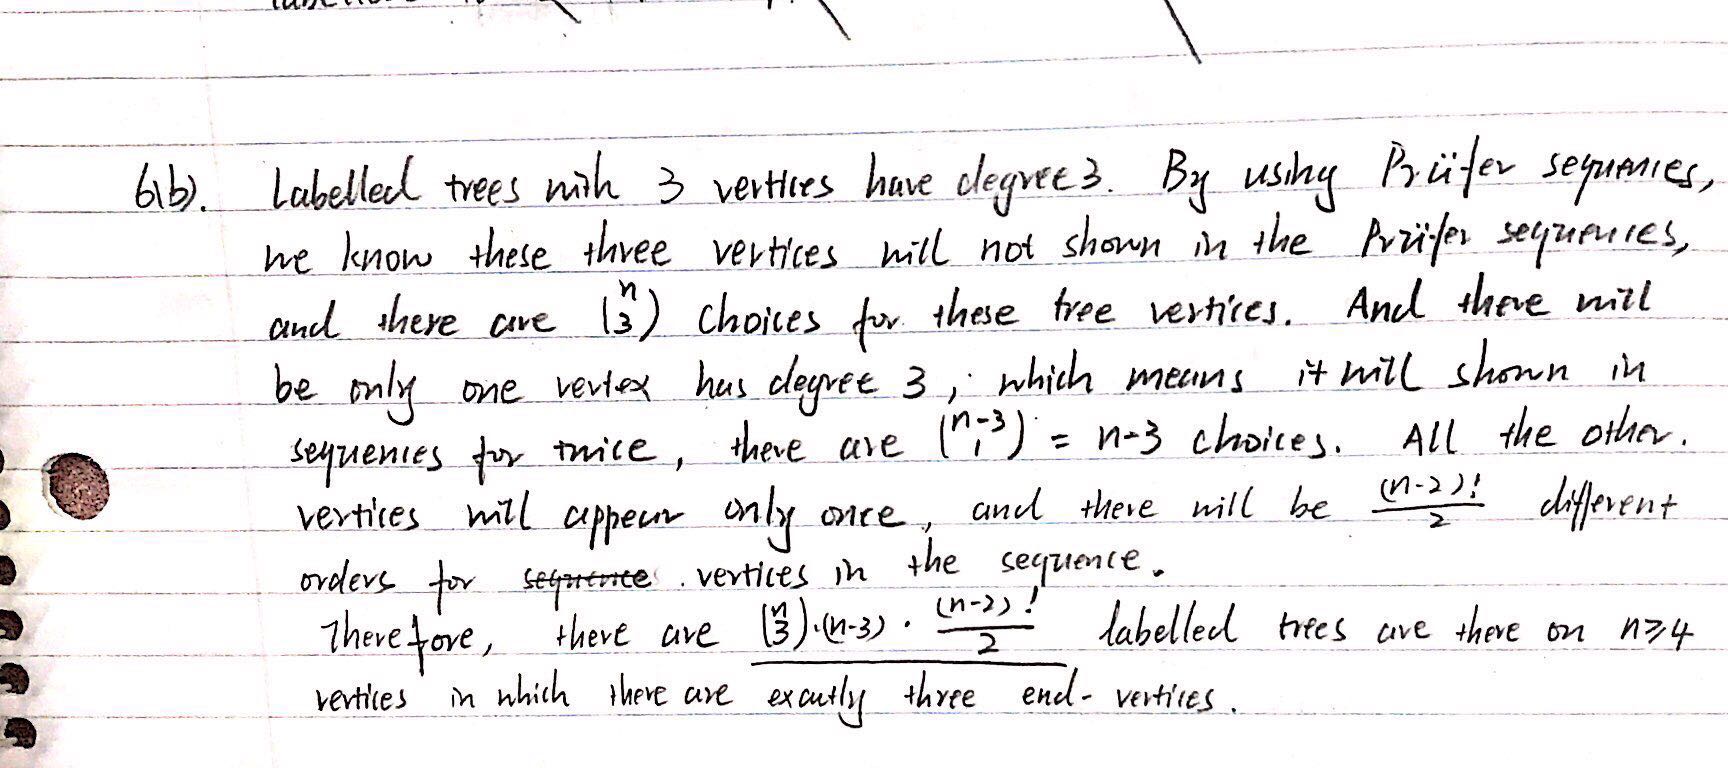 6(b). Labelled trees with 3 vertices have degree 3. By using Prüfer sequences,
we know these three vertices will not shown in the Prüfer sequences,
and there are (n 3) choices for these tree vertices. And there will
be only one vertex has degree 3, which means it will shown in
sequences for twice, there are (n-3 1) = n-3 choices. All the other
vertices will appear only once, and there will be (n-2)!/2 different
orders for sequence vertices in the sequence.
Therefore, there are (n 3)·(n-3)·(n-2)!/2 labelled trees are there on n≥4
vertices in which there are exactly three end-vertices.